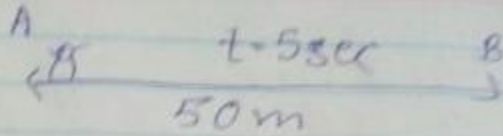 A t-5sec B
50m